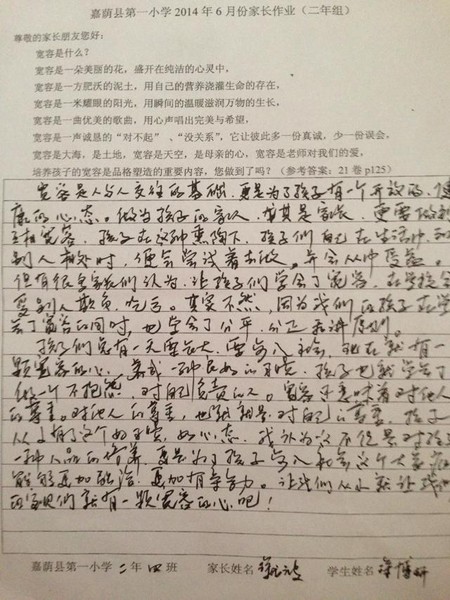 嘉荫县第一小学2014年6月份家长作业（二年组）
尊敬的家长朋友您好：
宽容是什么？
宽容是一朵美丽的花，盛开在纯洁的心灵中，
宽容是一方肥沃的泥土，用自己的营养浇灌生命的存在，
宽容是一米耀眼的阳光，用瞬间的温暖滋润万物的生长，
宽容是一曲优美的歌曲，用心声唱出完美与希望，
宽容是一声诚恳的“对不起”、“没关系”，它让彼此多一份真诚，少一份误会，
宽容是大海，是土地，宽容是天空，是母亲的心，宽容是老师对我们的爱，
培养孩子的宽容是品格塑造的重要内容，您做到了吗？（参考答案：21卷p125）
宽容是人与人交往的基础，更是为了孩子有一个开放的、健
康的心态。做为孩子的家人，尤其是家长，更需做到
宽容，孩子在这种熏陶下，孩子们自己在生活中和
别人相处时，便会尝试着去做。并会从中受益。
但有很多家长们认为，让孩子们学会了宽容，在学校会
受别人欺负，吃亏。其实不然，因为我们的孩子在学
会了宽容的同时，也学会了公平、公正和讲原则。
孩子们总有一天要长大，要步入社会，他在就有一
颗宽容的心，养成一种良好的习惯，孩子也就学会了
做一个不抱怨，对自己负责的人。宽容还意味着对他人
的尊重。对他人的尊重，也就相是对自己的尊重，孩子
从小有了这个好心态，我认为这不但是对孩子
一种人品的培养，更是为了孩子步入社会这个大家庭
能够更加融洽，更加有竞争力。让我们从小就让我们
的宝贝们就有一颗宽容的心吧！
嘉荫县第一小学 二年四班 家长姓名 学生姓名